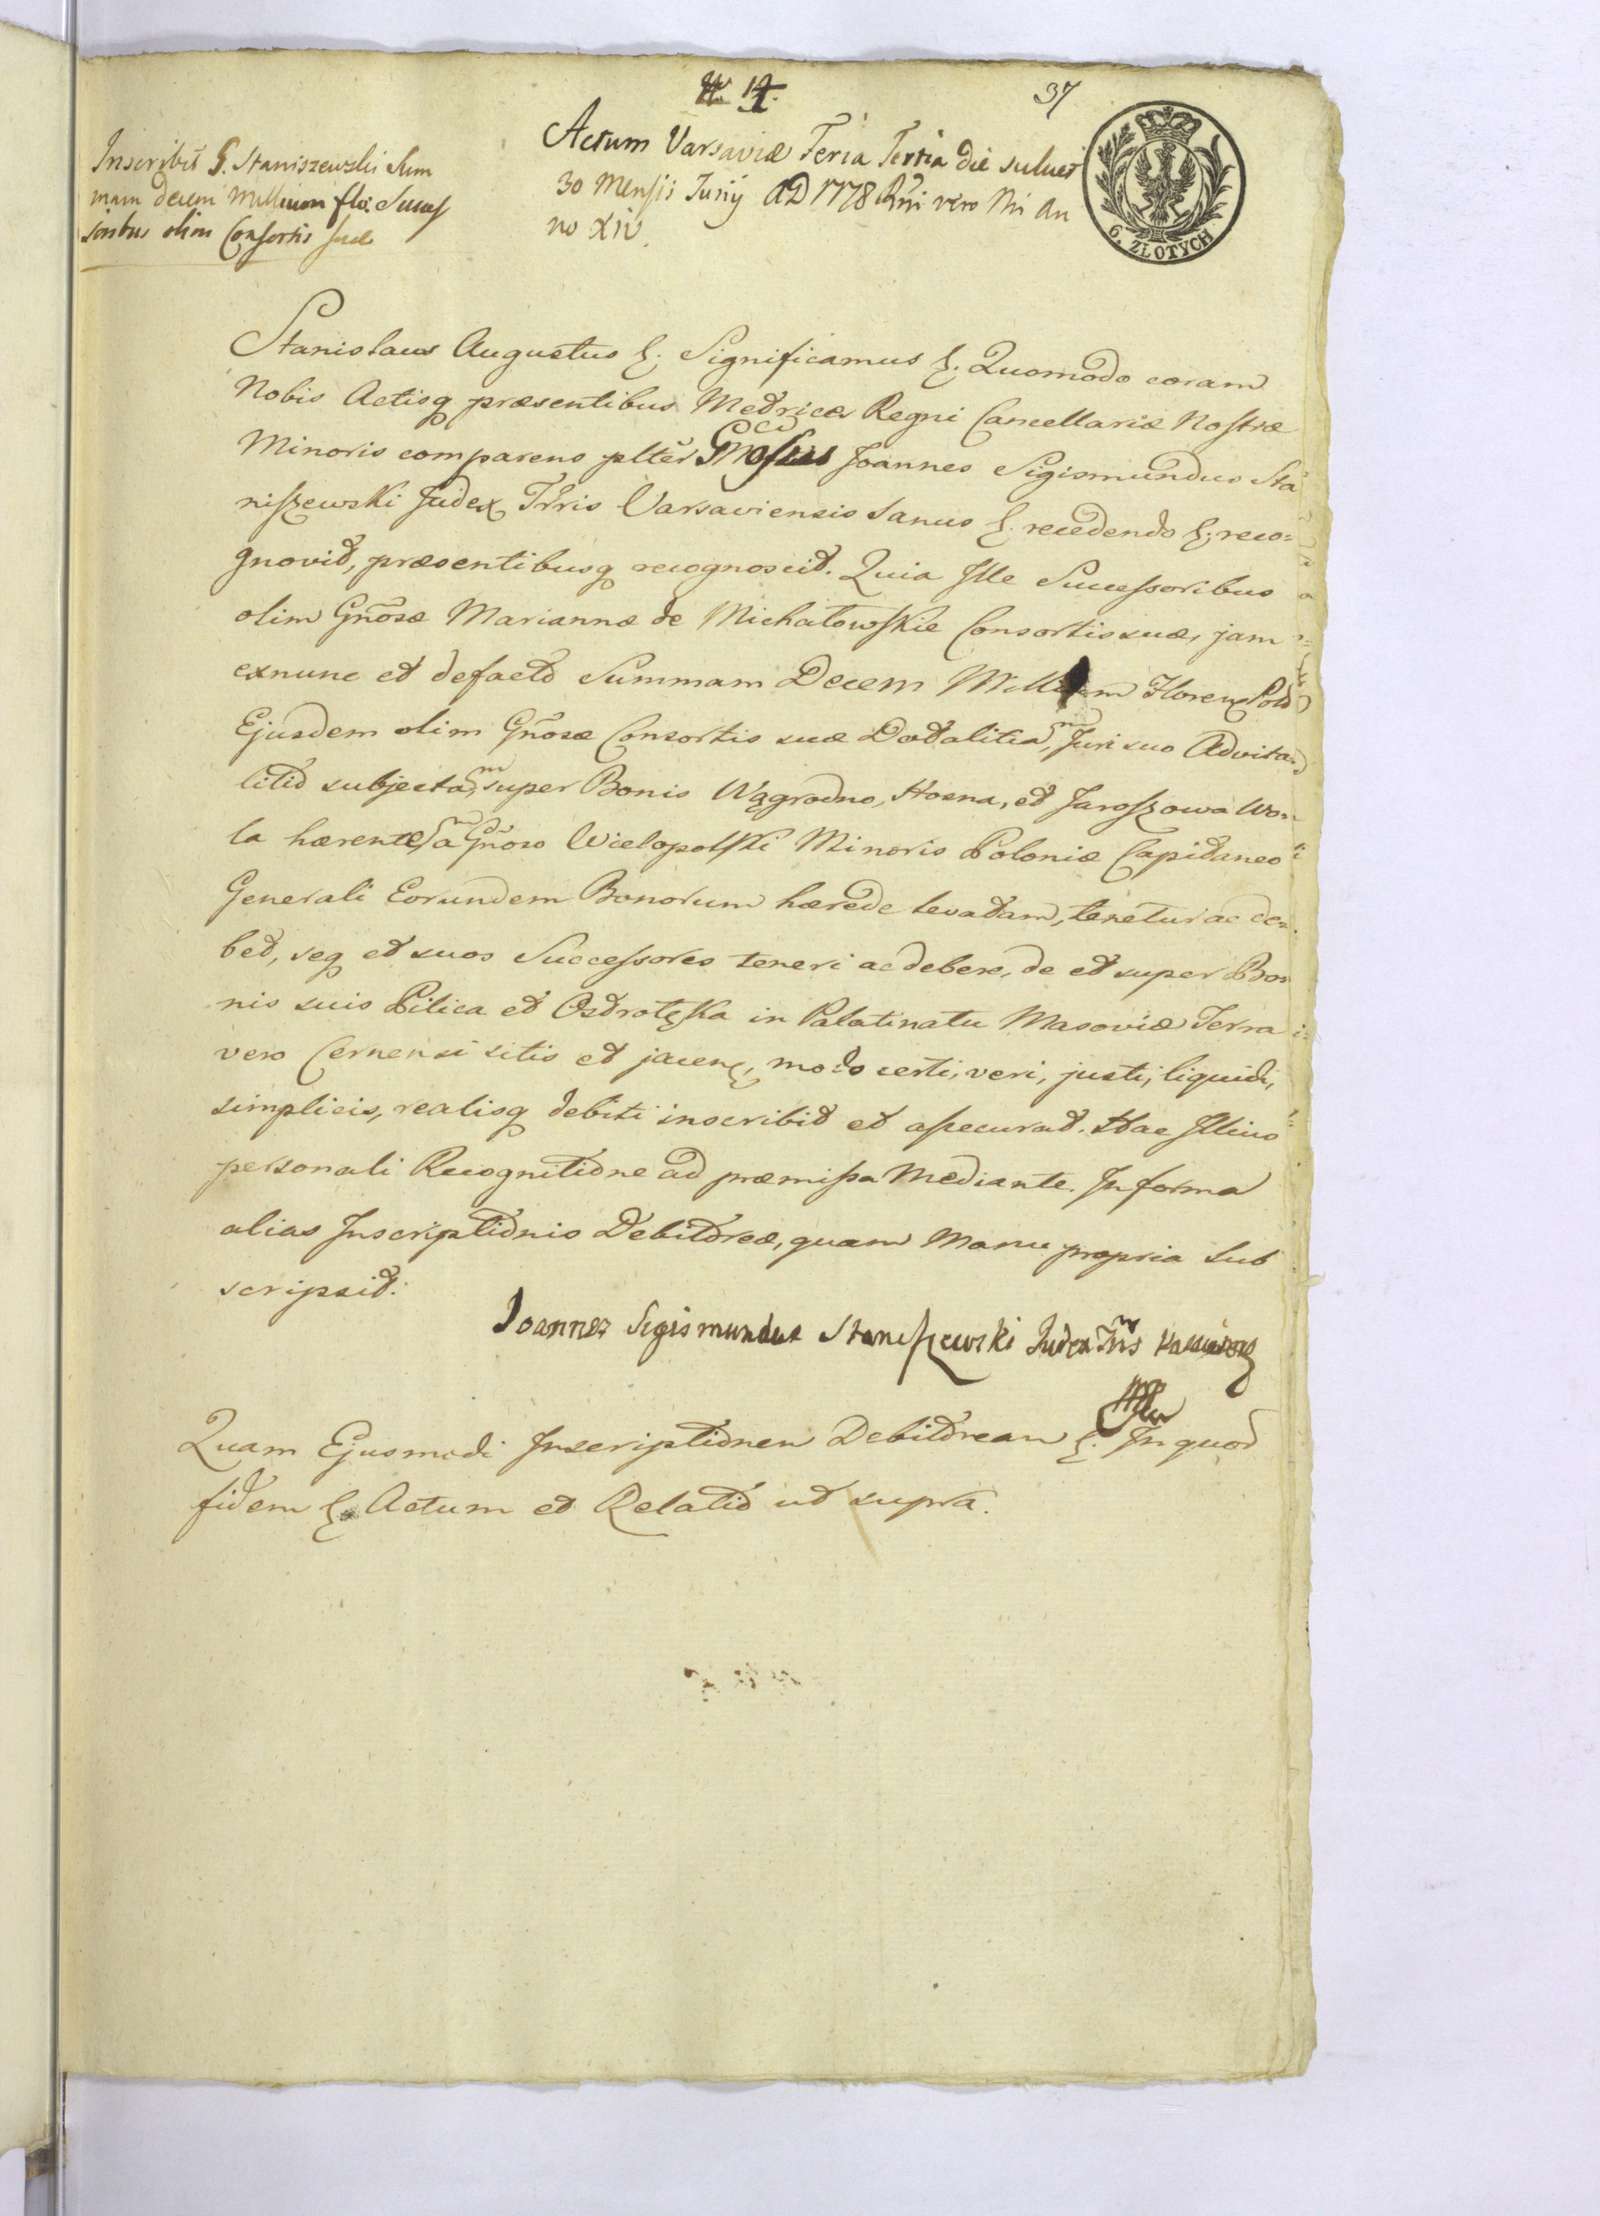 37
Inscribit G. Staniszewski Sum
mam decem Millium flo: Succes
soribus olim Consortis suae
Actum Varsaviæ Feria Tertia die
30 Mensis Junij AD 1778 Rñi vero Nri An
no XIV
6. ZŁOTYCH
Stanislaus Augustus &. Significamus &. Quomodo coram
Nobis Actisq præsentibus Metrices Regni Cancellariæ Nostræ
Minoris comparens plter Joannes Sigismundus Sta
niszewski Judex Trris Varsaviensis sanus &. recedendo &. reco=
gnovit, præsentibusq recognoscit. Quia Ille Successoribus
olim Gñosæ Mariannæ de Michałowskie Consortis suæ, jam
exnunc et defacto Summam Decem Millium Floren Pold
Ejusdem olim Gñosæ Consortis suæ Dotalitiam, Juri suo Advita=
litio subjectam, super Bonis Wągrodno, Hosna, et Jaroszowa Wo=
la hærentem a Gñoso Wielopolski Minoris Poloniæ Capitaneo
Generali Eorundem Bonorum hærede levatam, tenetur ac de=
bet, seq et suos Successores teneri ac debere, de et super Bo=
nis suis Pilica et Ostrołęka in Palatinatu Masoviæ Terra
vero Cernensi sitis et jacen, modo certi, veri, justi, liquidi,
simplicis, realisq debiti inscribit et assecurat. Hac Illius
personali Recognitione ad præmissa Mediante. In forma
alias Inscriptionis Debitoreæ, quam Manu propria Sub
scripsit.
Joannes Sigismundus Staniszewski Judex Trris
Quam Ejusmodi Inscriptionem Debitoream &. In quor
fidem &. Actum et Relatio ut supra.